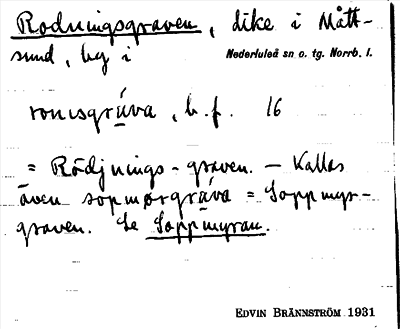 Rodningsgraven, dike i Mått-
sund, by i Nederluleå sn o. tg. Norrb. l.
ronısgrɑ̈va, b. f. 16
= Rödjnings-graven. – Kallas
även sopmørgrɑ̈va = Soppmyr-
graven. Se Soppmyran.
EDVIN BRÄNNSTRÖM 1931